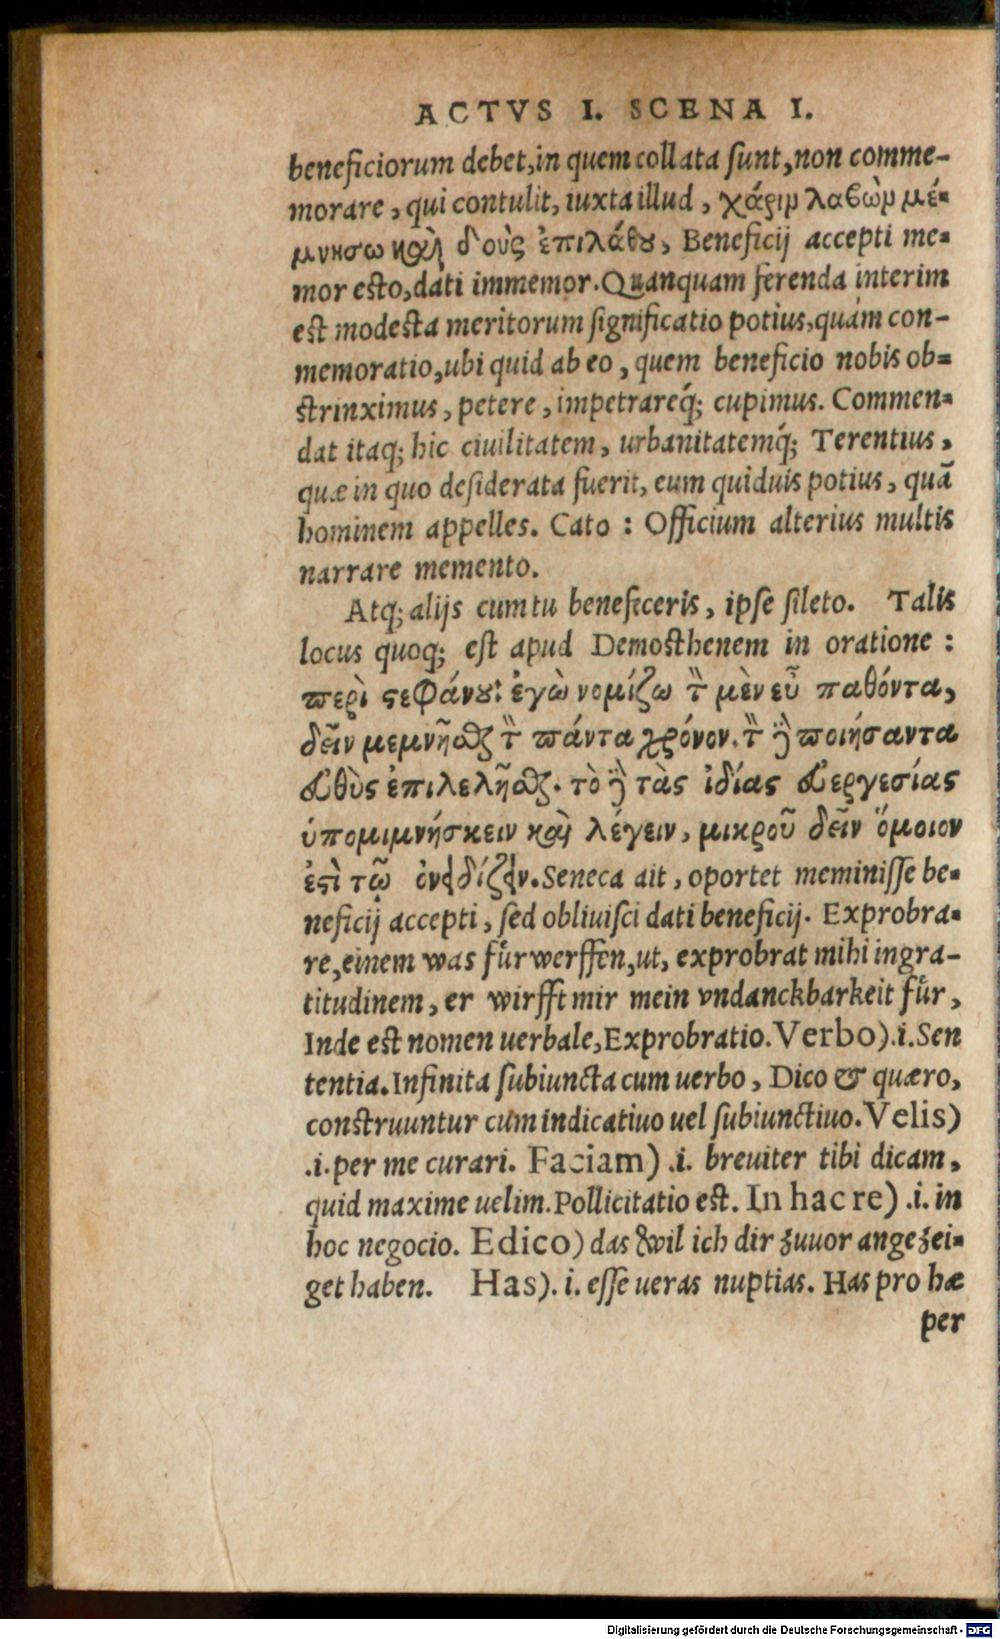 ACTVS I. SCENA I.
beneficiorum debet, in quem collata ſunt, non comme-
morare, qui contulit, iuxta illud, χάριμ λαβὼμ μέ-
μνησω καὶ δ'οὺς ἐπιλάθȣ, Beneficij accepti me-
mor esto, dati immemor. Quanquam ferenda interim
est modesta meritorum ſignificatio potius, quàm con-
memoratio, ubi quid ab eo, quem beneficio nobis ob-
strinximus, petere, impetrareq́; cupimus. Commen-
dat itaq; hic ciuilitatem, urbanitatemq́; Terentius,
quæ in quo deſiderata fuerit, eum quiduis potius, quã
hominem appelles. Cato : Officium alterius multis
narrare memento.
Atq; alijs cum tu benefeceris, ipſe ſileto. Talis
locus quoq; eſt apud Demosthenem in oratione :
περὶ ϛεφάνȣ: ἐγὼ νομίζω τ̀ μὲν εὖ παθόντα,
δεῖν μεμνῆσθαι τ̀ πάντα χρόνον. τ̀ δὲ ποιήσαντα
εὐθὺς ἐπιλελῆσθαι. τὸ δὲ τὰς ἰδίας εὐεργεσίας
ὑπομιμνήσκειν καὶ λέγειν, μικροῦ δεῖν ὅμοιον
ἐϛὶ τῷ ὀνειδίζειν. Seneca ait, oportet meminiſſe be-
neficij accepti, ſed obliuiſci dati beneficij. Exprobra-
re, einem was fuͤrwerffen, ut, exprobrat mihi ingra-
titudinem, er wirfft mir mein vndanckbarkeit fuͤr,
Inde est nomen uerbale, Exprobratio. Verbo) .i. Sen
tentia. Infinita ſubiuncta cum uerbo, Dico & quæro,
construuntur cum indicatiuo uel ſubiunctiuo. Velis)
.i. per me curari. Faciam) .i. breuiter tibi dicam,
quid maxime uelim. Pollicitatio est. In hac re) .i. in
hoc negocio. Edico) das wil ich dir zuuor angezei-
get haben. Has). i. eſſe ueras nuptias. Has pro hæ
per
Digitalisierung gefördert durch die Deutsche Forschungsgemeinschaft - DFG